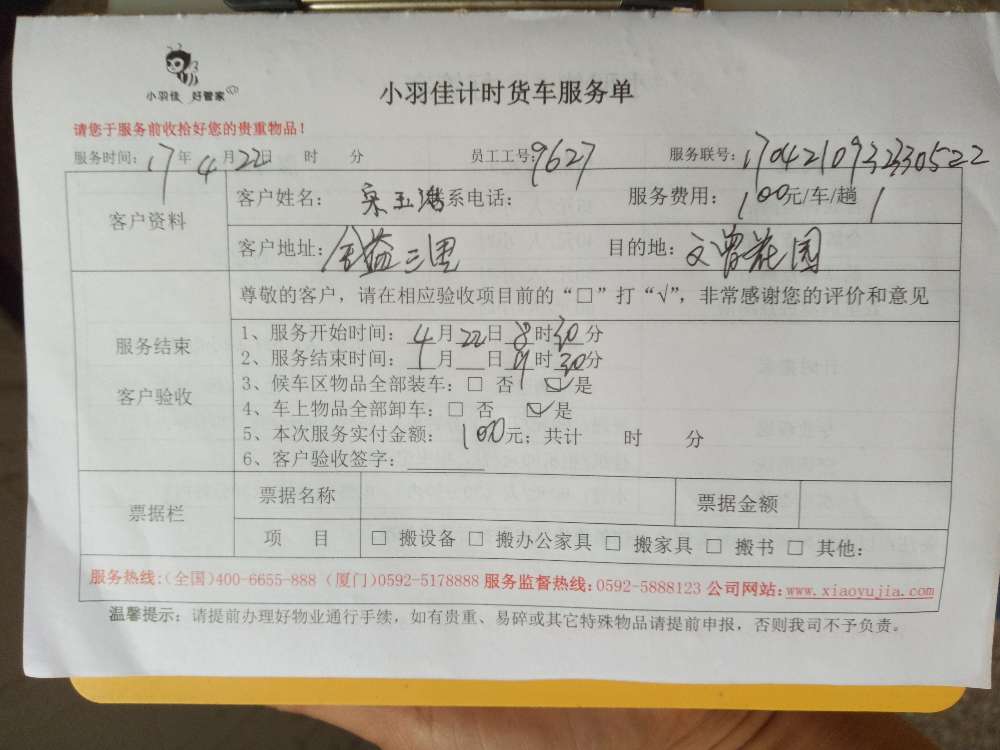 小羽佳 好管家
小羽佳计时货车服务单
请您于服务前收拾好您的贵重物品!
服务时间: 17年 4月 22日 时 分 员工工号: 9627 服务联号: 170421093230522
客户资料
客户姓名: 宋玉 系电话: 服务费用: 100元/车/趟 1
客户地址: 金益三里 目的地: 文曾花园
尊敬的客户，请在相应验收项目前的“□”打“√”，非常感谢您的评价和意见
服务结束
客户验收
1、服务开始时间: 4月22日8时30分
2、服务结束时间: 月 日 时30分
3、候车区物品全部装车: □ 否 ☑是
4、车上物品全部卸车: □ 否 ☑是
5、本次服务实付金额: 100元; 共计 时 分
6、客户验收签字:
票据栏
票据名称 票据金额
项 目 □ 搬设备 □ 搬办公家具 □ 搬家具 □ 搬书 □ 其他:
服务热线:(全国)400-6655-888 (厦门)0592-5178888 服务监督热线:0592-5888123 公司网站:www.xiaoyujia.com
温馨提示: 请提前办理好物业通行手续，如有贵重、易碎或其它特殊物品请提前申报，否则我司不予负责。